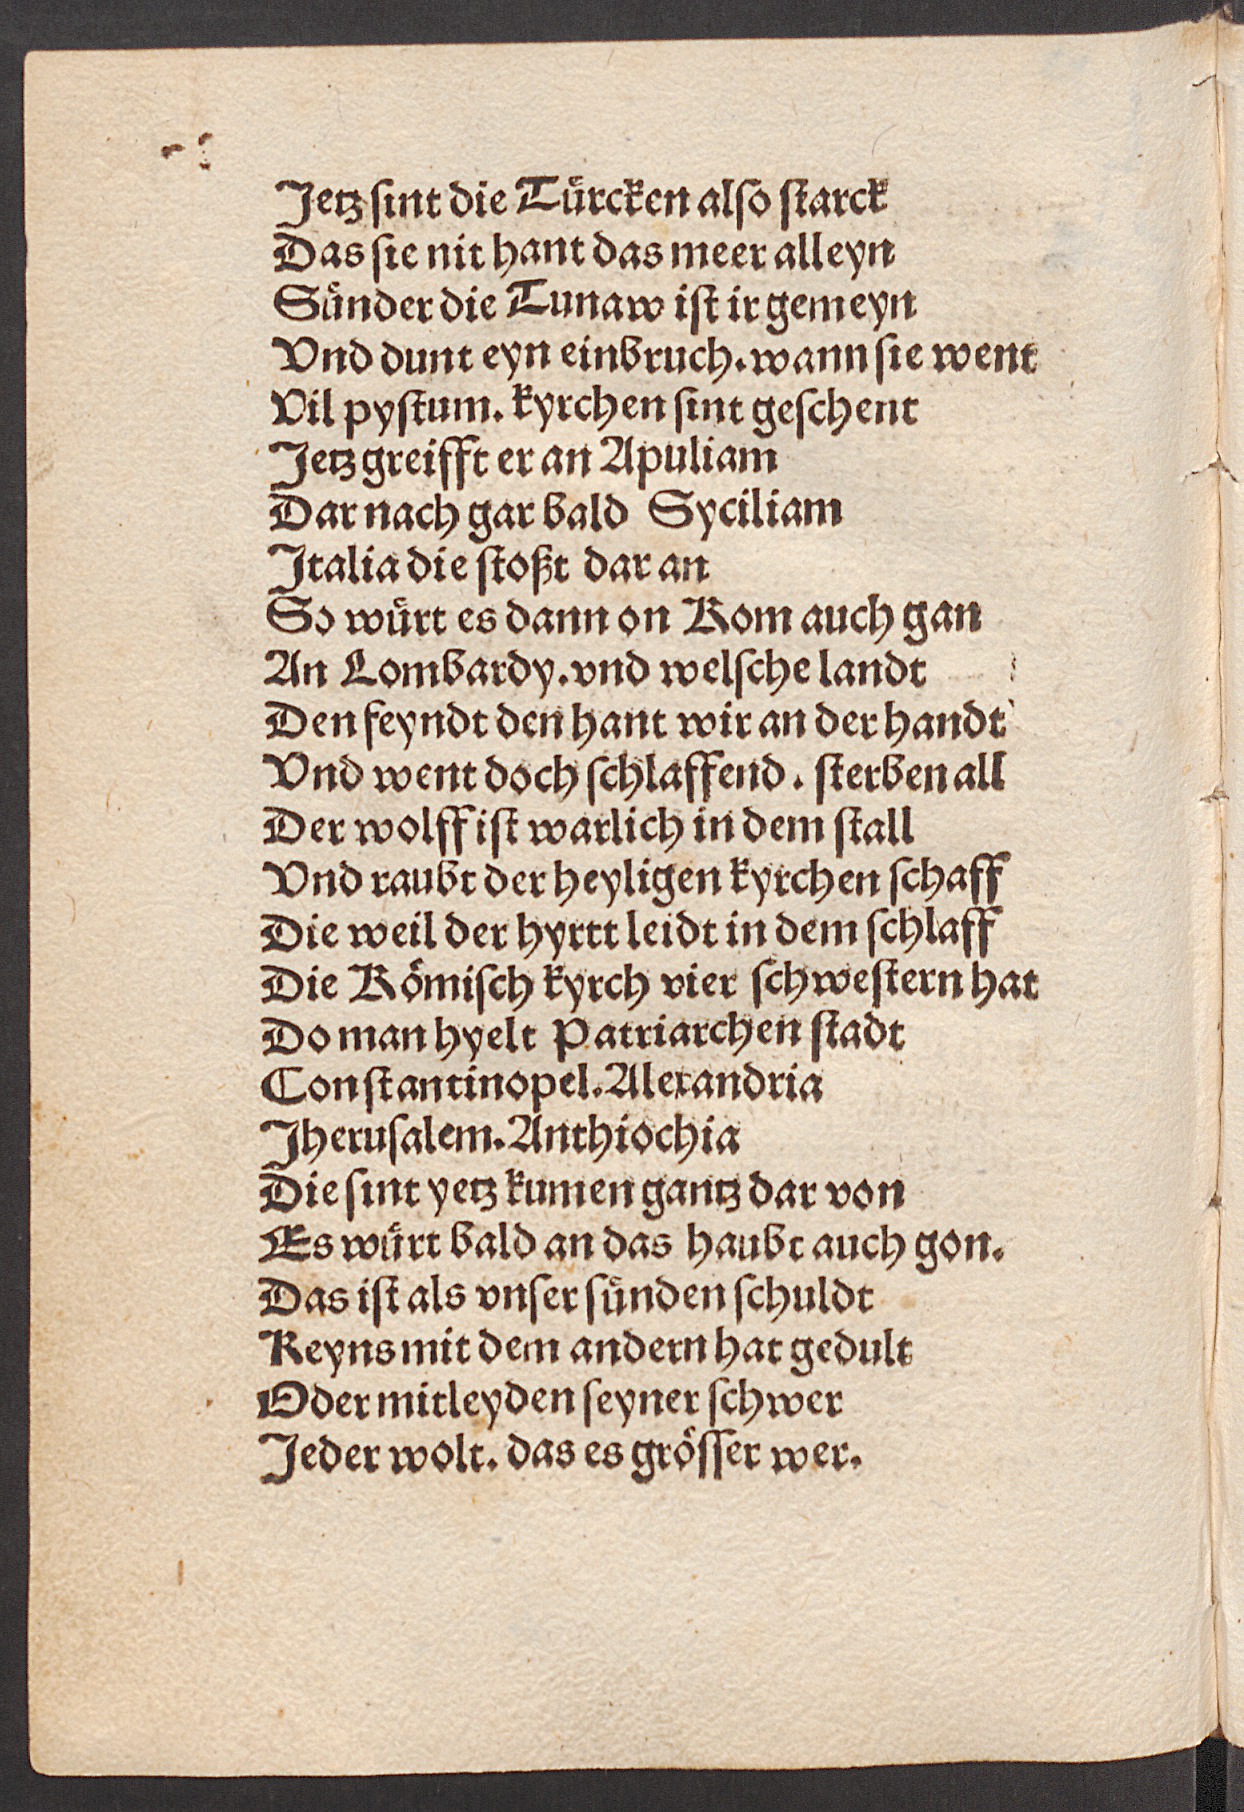 Jetz ſint die Tuͤrcken alſo ſtarck
Das ſie nit hant das meer alleyn
Suͤnder die Tunaw iſt ir gemeyn
Vnd dunt eyn einbruch. wann ſie went
Vil pyſtum. kyrchen ſint geſchent
Jetz greifft er an Apuliam
Dar nach gar bald Syciliam
Jtalia die ſtoßt dar an
So wuͤrt es dann on Rom auch gan
An Lombardy. vnd welſche landt
Den feyndt den hant wir an der handt
Vnd went doch ſchlaffend. ſterben all
Der wolff iſt warlich in dem ſtall
Vnd raubt der heyligen kyrchen ſchaff
Die weil der hyrtt leidt in dem ſchlaff
Die Roͤmiſch kyrch vier ſchweſtern hat
Do man hyelt Patriarchen ſtadt
Conſtantinopel. Alexandria
Jheruſalem. Anthiochia
Die ſint yetz kumen gantz dar von
Es wuͤrt bald an das haubt auch gon.
Das iſt als vnſer ſuͤnden ſchuldt
Keyns mit dem andern hat gedult
Oder mitleyden ſeyner ſchwer
Jeder wolt. das es groͤſſer wer.